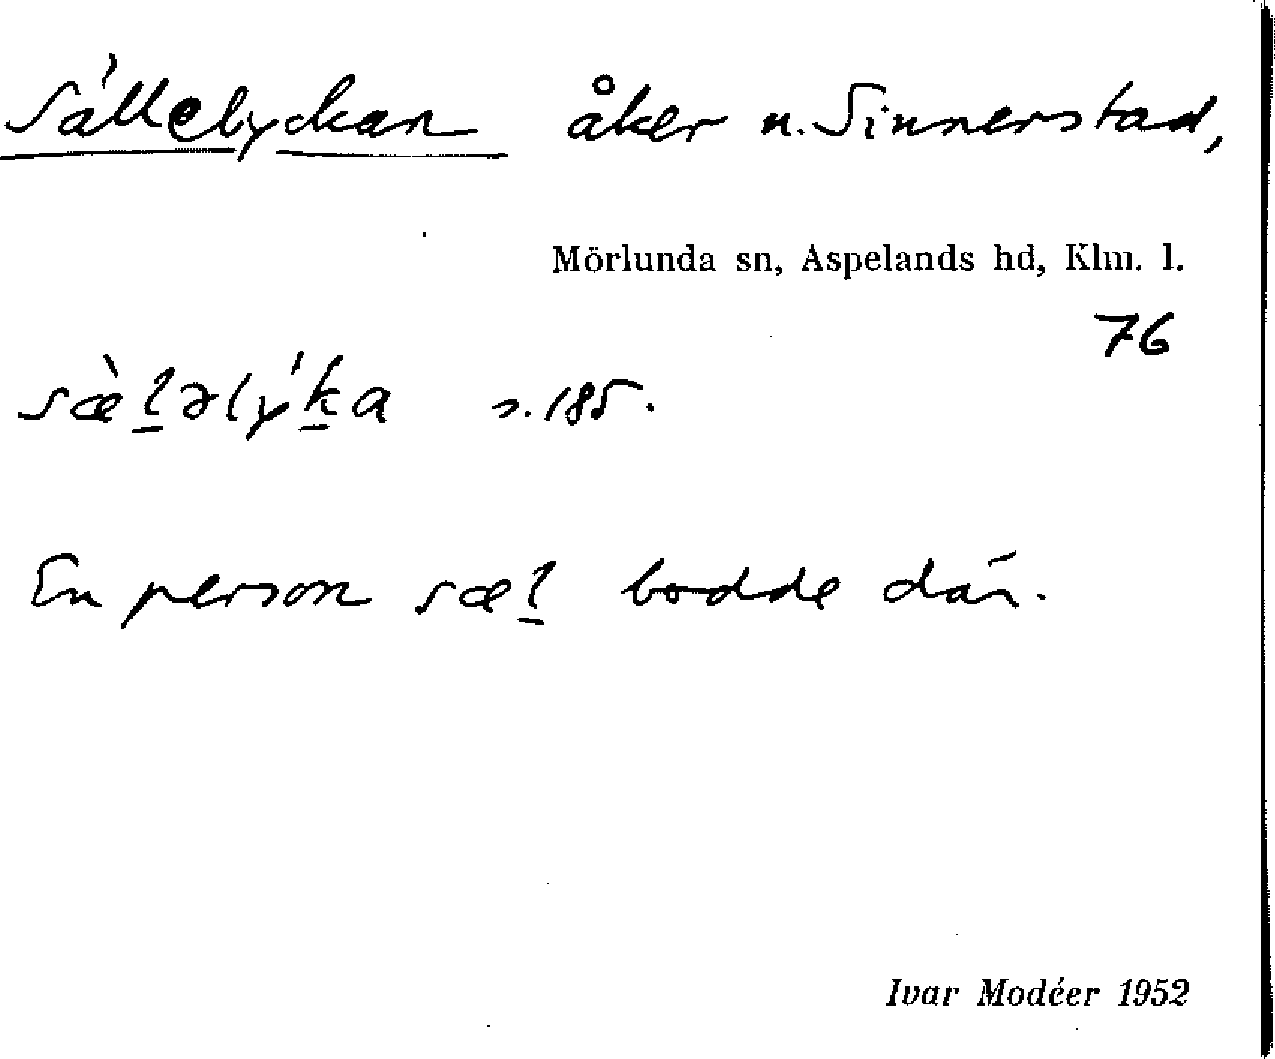 Sällelyckan åker n. Sinnerstad,
Mörlunda sn, Aspelands hd, Klm. l.
76
sæ̀l̠əlýk̠a s. 185.
En person sæl̠ bodde där.
Ivar Modéer 1952